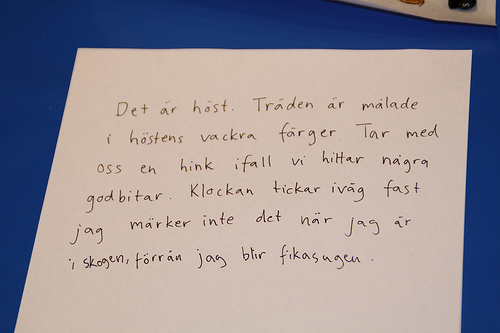 Det är höst. Träden är målade
i höstens vackra färger. Tar med
oss en hink ifall vi hittar några
godbitar. Klockan tickar iväg fast
jag märker inte det när jag är
i skogen, förrän jag blir fikasugen.